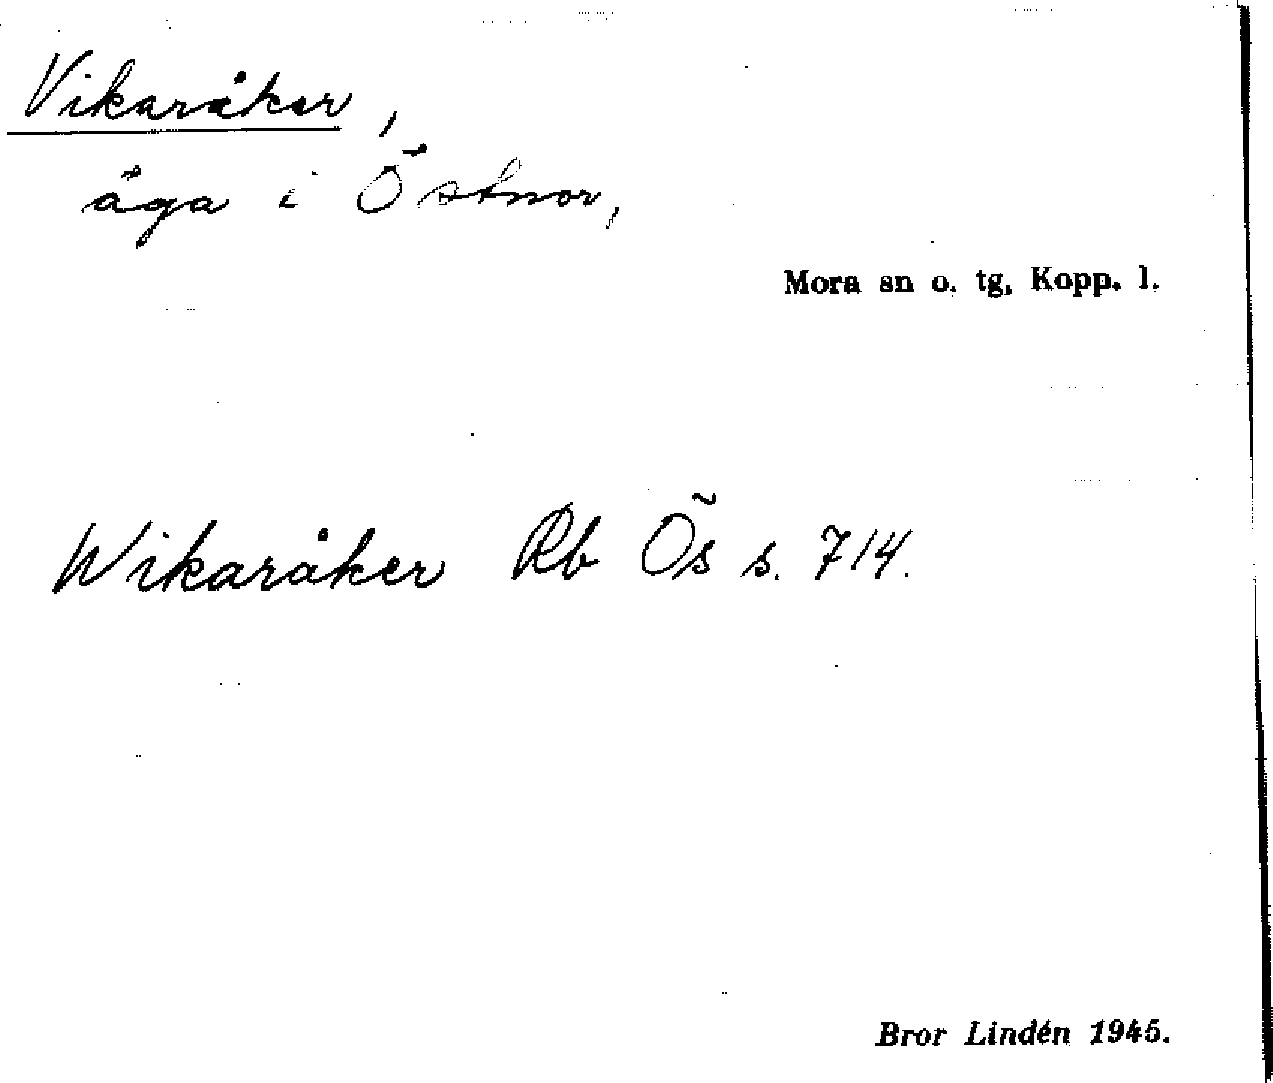 Vikaråker,
äga i Östnor,
Mora sn o. tg, Kopp. l.
Wikaråker Rb Ös s. 714.
Bror Lindén 1945.